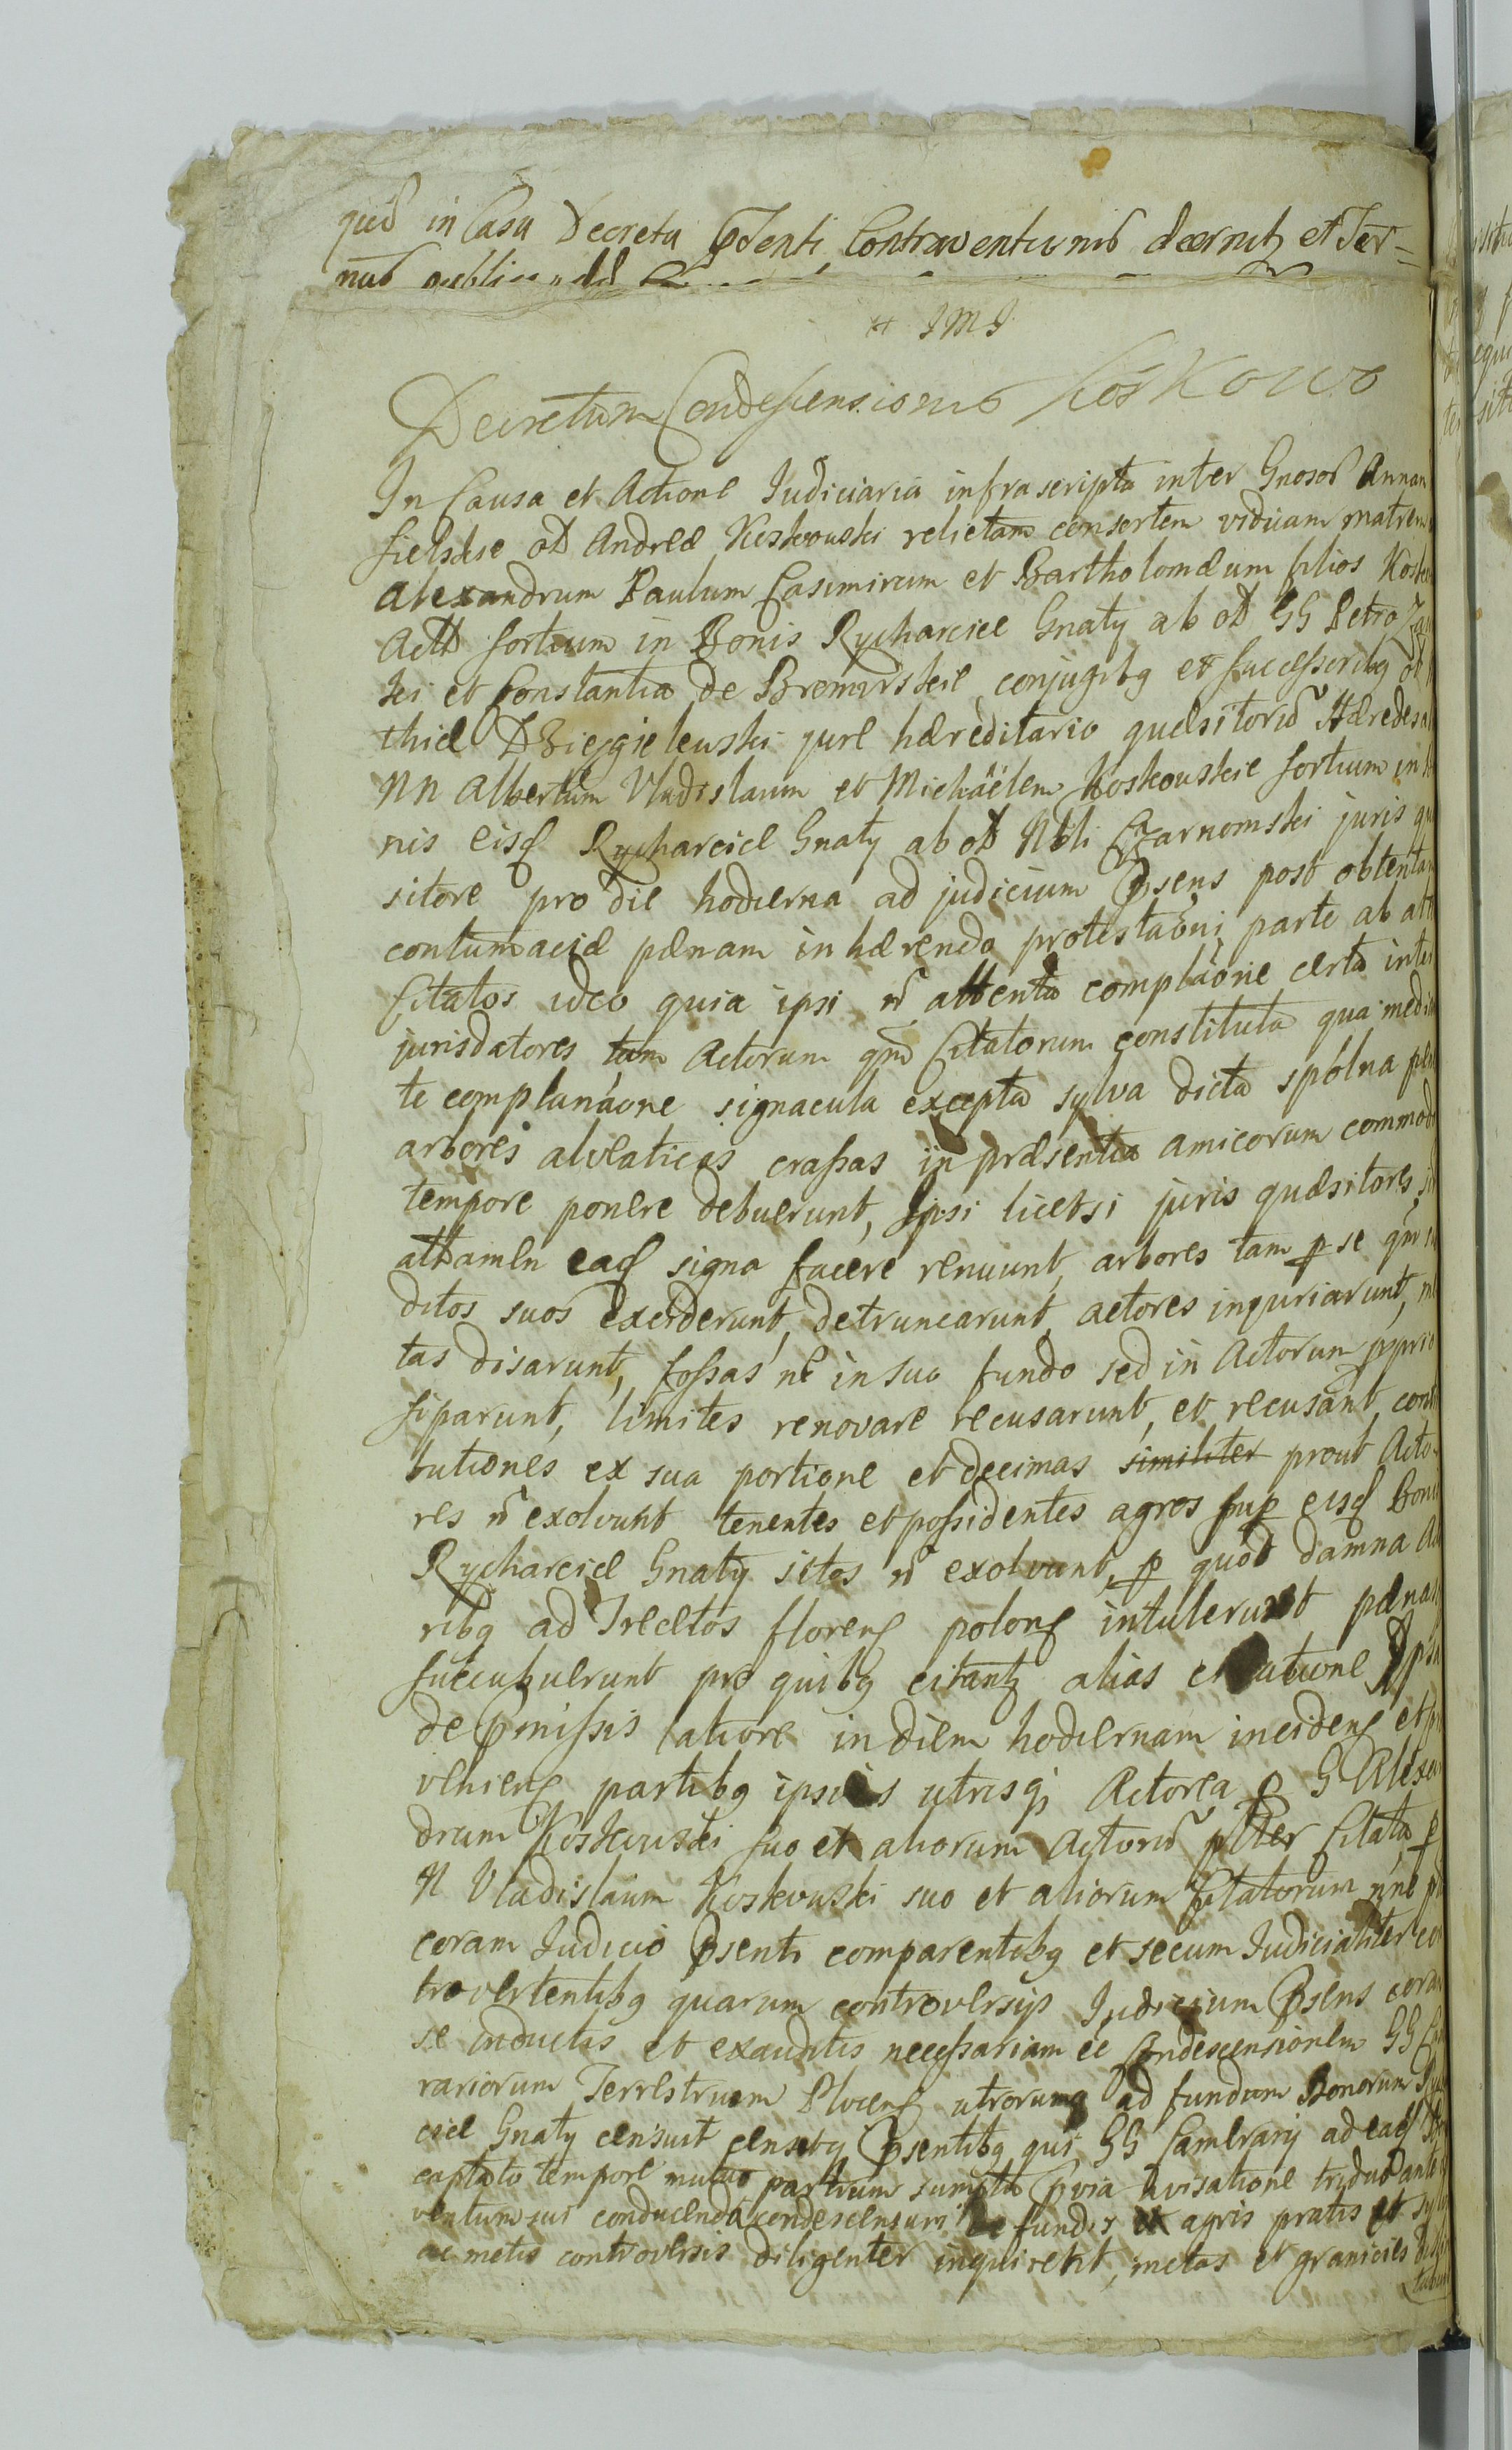 in Casu Decreta Contraventionis et Ter=
nus
JMJ
Decretum Condescensionis Koskowo
In Causa et Actione Judiciaria infrascripta inter Gnosos Annam
olim Andreæ Koskowski relictam consortem viduam matrem
Alexandrum Paulum Casimirum et Bartholomæum filios
sortium in Bonis Rycharcice Gnaty ab GG Petro
ski et Constantia de conjugibg et successoribg
thia jure hæreditario quæsitorũ Hæredes
NN Albertum Vladislaum et Michäëlem Koskouskie sortium in
nis eisq Rycharcice Gnaty ab Czarnomski juris
sitore pro die hodierna ad judicium psens post obtentam
contumaciæ pænam inhærendo parte ab
Citatos ideo quia ipsi attenta certa inter
jurisdatores tam Actorum qm Citatorum constituta qua
te complanãone signacula excepta sylva dicta spólna
arbores alveaticas crassas in præsentia amicorum commodo
tempore ponere debuerunt, Ipsi licetsi juris quæsitores
attamen eaq signa facere renuunt, arbores tam p se qm
ditos suos exciderunt, detruncarunt, actores injuriarunt,
tas disarunt, fossas in suo fundo sed in Actorum pprio
siparunt, limites renovare recusarunt, et recusant,
butiones ex sua portione et decimas similiter prout Acto-
res ñ exolvunt tenentes et possidentes agros sup eisq Bonis
Rycharcice Gnaty sitos ñ exolvunt, p quod damna
ribg ad Trecetos florenq polonq intulerunt pænas
succubuerunt pro quibg citantz alias citatione
de pmissis latiore in diem hodiernam incidenq et
venienq partibg ipsius utrisqj Actorea p G Alexan
drum Koskowski suo et aliorum Actorũ Citata p
N Vladislaum Koskowski suo et aliorum Citatorum nne
coram Judicio psenti comparentibg et secum Judicialiter
trovertentibg quarum controversijs Judicium psens coram
se inductis et exauditis necessariam ee Condescensionem GG
rariorum Terrestrium Plocenq utrorumq ad fundum Bonorum
cice Gnaty censuit censetq psentibg qui GG Camerarij ad eaq
captato tempore mutuo partium sumptu pvia avisatione triduo ante
ventum sui conducendi condescensuri de fundis agris pratis et
ac metis controversis diligenter inquirent, metas et granicies